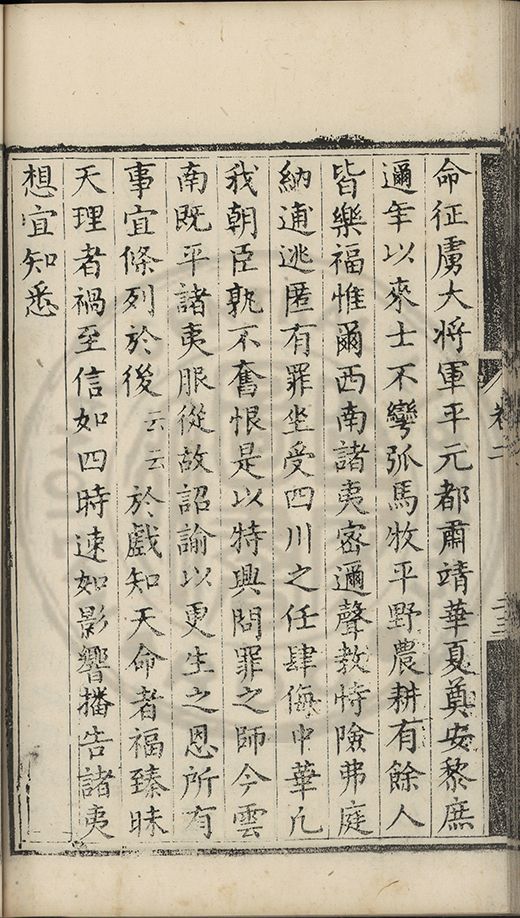 命征虜大將軍平元都肅靖華夏奠安黎庶
邇年以來士不彎弧馬牧平野農耕有餘人
皆樂福惟爾西南諸夷密邇聲教恃險弗庭
納逋逃匿有罪坐受四川之任肆侮中華凡
我朝臣孰不奮恨是以特興問罪之師今雲
南既平諸夷服從故詔諭以更生之恩所有
事宜條列於後云云於戲知天命者福臻昧
天理者禍至信如四時速如影響播告諸夷
想宜知悉
卷二